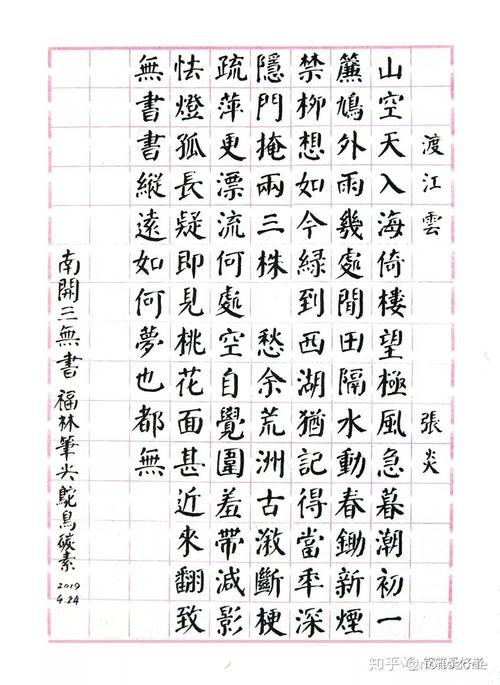 渡江雲 張炎
山空天入海倚樓望極風急暮潮初一
簾鳩外雨幾處閒田隔水動春鋤新煙
禁柳想如今綠到西湖猶記得當年深
隱門掩兩三株 愁余荒洲古漵斷梗
疏萍更漂流何處空自覺圍羞帶減影
怯燈孤長疑即見桃花面甚近來翻致
無書書縱遠如何夢也都無
南開三無書 福林筆尖鴕鳥碳素 2019 4.24
知乎